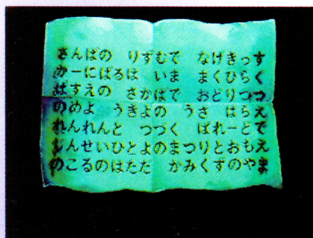 さんばの　りずむで　なげきっす
かーにばるは　いま　まくひらく
はすえの　さかばで　おどりつつ
のめよ　うきよの　うさ　はらえ
れんれんと　つづく　ぱれーどで
じんせいひとよのまつりとおもえ
のこるのはただ　かみくずのやま